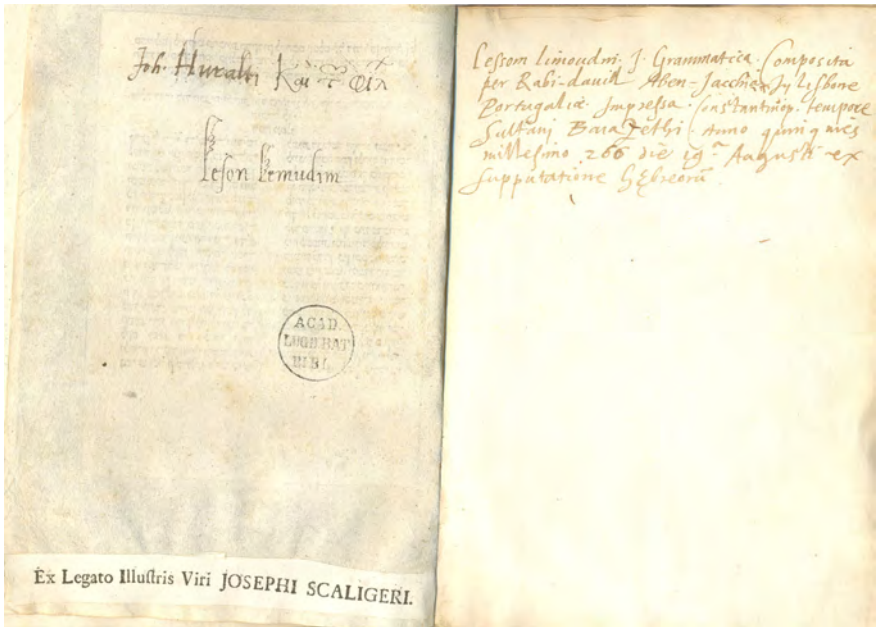 Joh. Huralti Καὶ τ φιλ
leson lemudim
ACAD.
LUGD BAT
BIBL
Ex Legato Illuſtris Viri JOSEPHI SCALIGERI.
Leſsom limoudni. J. Grammatica. Composita
per Rabi-david Aben-Jacchia In Lisbone
Portugaliæ. Impressa. Constantinop. tempore
Sultani Baiazethi. Anno quinquies
millesimo 266 die 19a Augusti ex
supputatione hębreorū